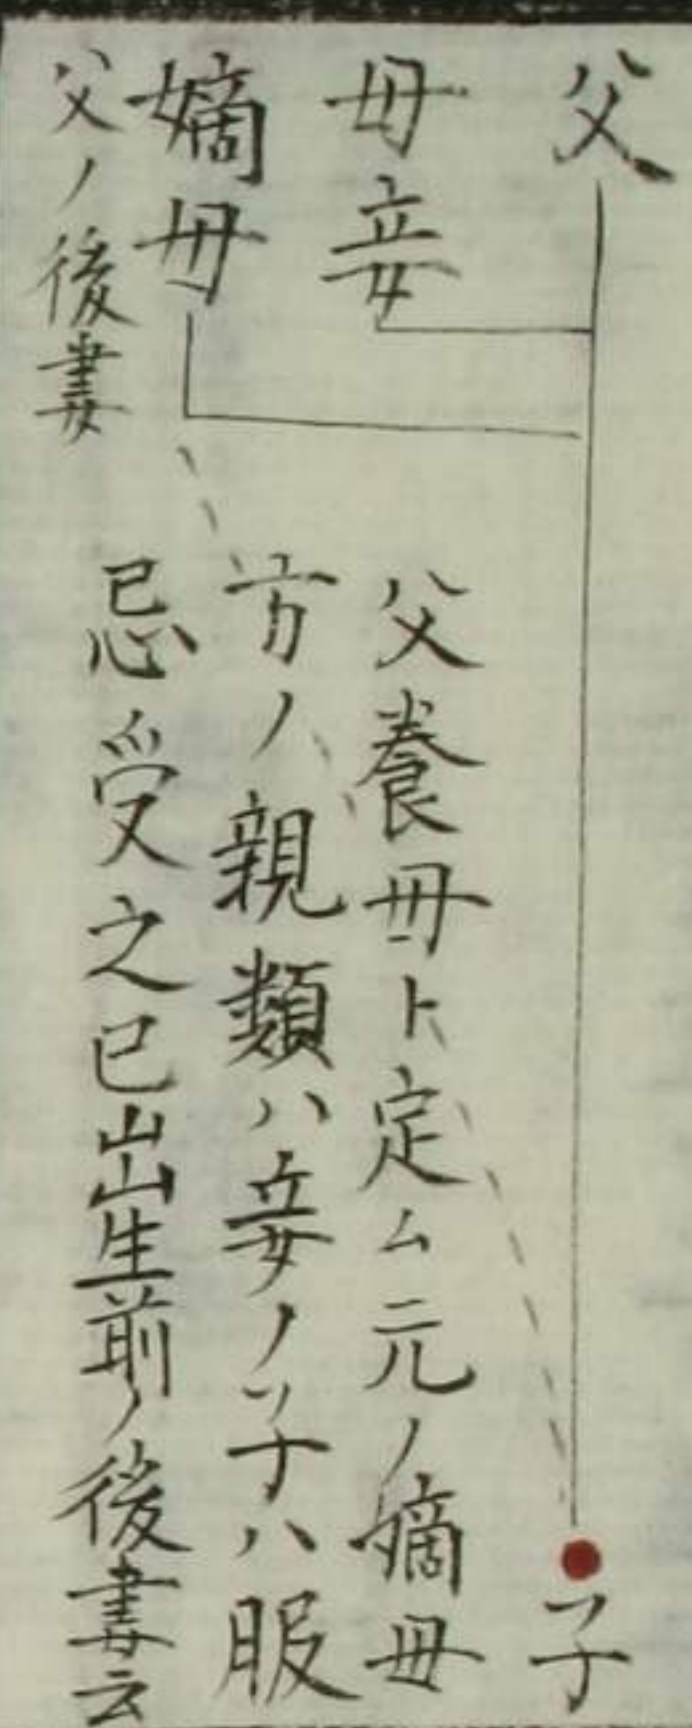 父
子
母妾
嫡母
父ノ後妻
父養母ト定ム元ノ嫡母
方ノ親類ハ妾ノ子ハ服
忌受之已出生前ノ後妻云